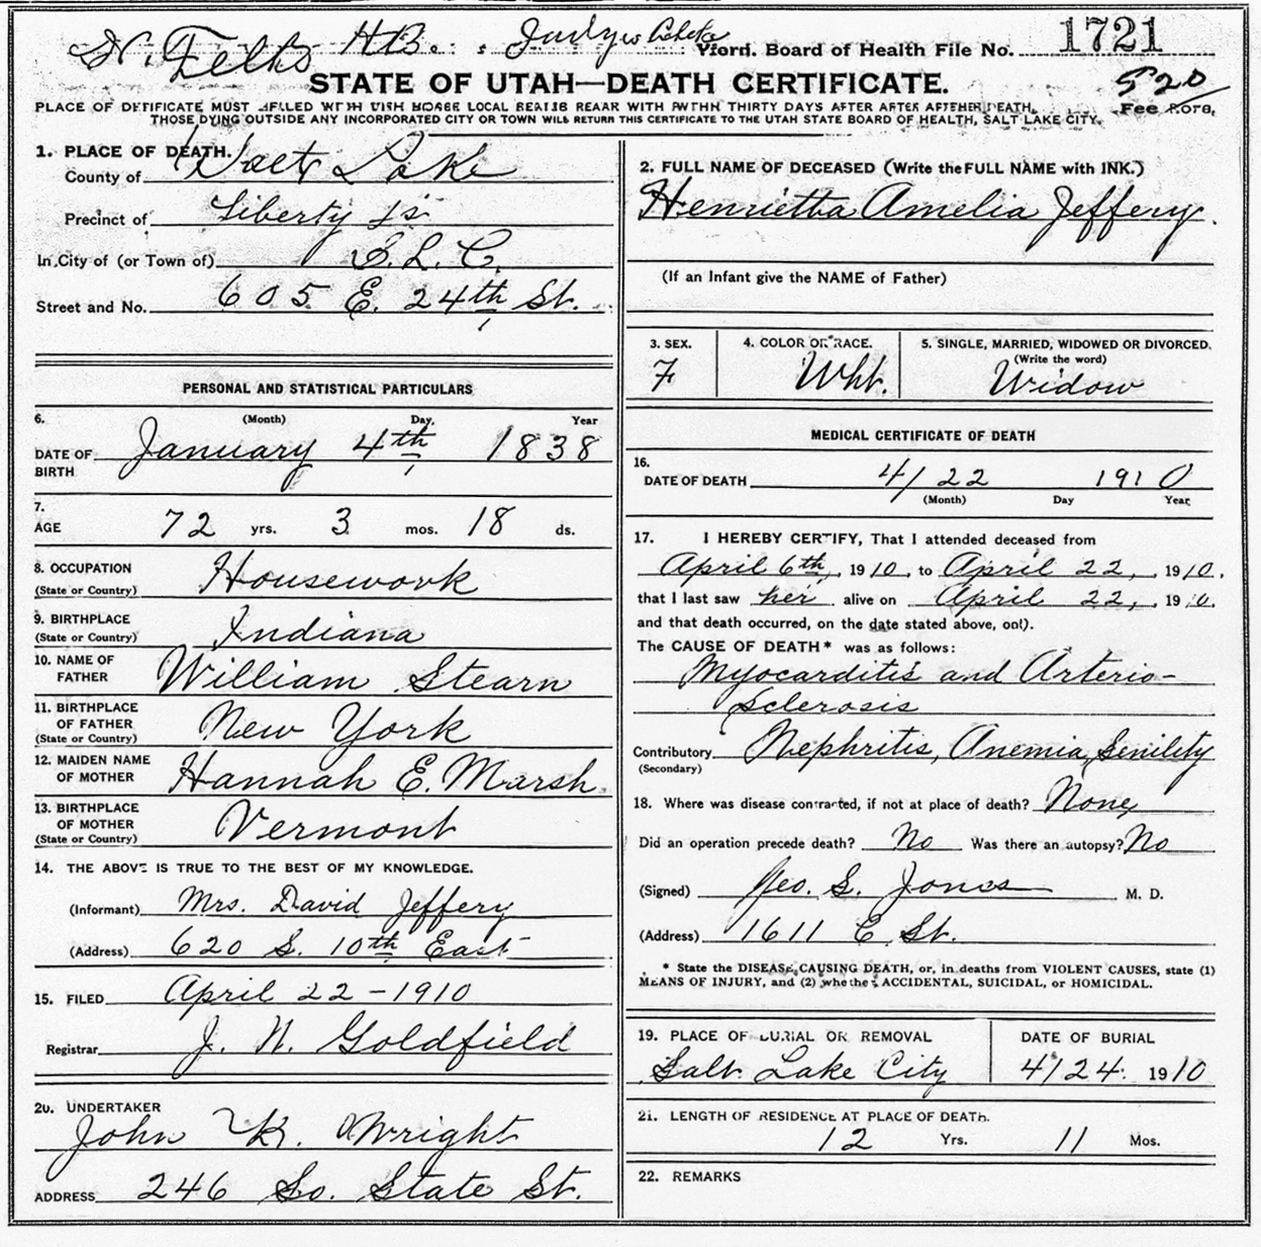 H.B. Board of Health File No. 1721
STATE OF UTAH—DEATH CERTIFICATE.
520
PLACE OF MUST LOCAL WITH THIRTY DAYS AFTER DEATH.
Fee
THOSE DYING OUTSIDE ANY INCORPORATED CITY OR TOWN WILL RETURN THIS CERTIFICATE TO THE UTAH STATE BOARD OF HEALTH, SALT LAKE CITY.
1. PLACE OF DEATH.
County of Lake
Precinct of Liberty
In City of (or Town of) S.L.C.
Street and No. 605 E. 24th St.
PERSONAL AND STATISTICAL PARTICULARS
6. (Month) Day. Year
DATE OF BIRTH January 4th 1838
7.
AGE 72 yrs. 3 mos. 18 ds.
8. OCCUPATION
(State or Country) Housework
9. BIRTHPLACE
(State or Country) Indiana
10. NAME OF
FATHER William Stearn
11. BIRTHPLACE
OF FATHER New York
(State or Country)
12. MAIDEN NAME
OF MOTHER Hannah E. Marsh
13. BIRTHPLACE
OF MOTHER Vermont
(State or Country)
14. THE ABOVE IS TRUE TO THE BEST OF MY KNOWLEDGE.
(Informant) Mrs. David Jeffery
(Address) 620 S. 10th East
15. FILED April 22-1910
Registrar J. N. Goldfield
20. UNDERTAKER
John K. Wright
ADDRESS 246 So. State St.
2. FULL NAME OF DECEASED (Write the FULL NAME with INK.)
Henrietta Amelia Jeffery.
(If an Infant give the NAME of Father)
3. SEX. 4. COLOR OR RACE. 5. SINGLE, MARRIED, WIDOWED OR DIVORCED.
(Write the word)
7 Wht. Widow
MEDICAL CERTIFICATE OF DEATH
16.
DATE OF DEATH 4/22 1910
(Month) Day Year
17. I HEREBY CERTIFY, That I attended deceased from
April 6th, 1910, to April 22, 1910,
that I last saw her alive on April 22, 1910.
and that death occurred, on the date stated above,
The CAUSE OF DEATH* was as follows:
Myocarditis and Arterio-
Sclerosis
Contributory Nephritis, Anemia, Senility
(Secondary)
18. Where was disease contracted, if not at place of death? None
Did an operation precede death? No Was there an autopsy? No
(Signed) Geo. S. Jones M. D.
(Address) 1611 E St.
* State the DISEASE CAUSING DEATH, or, in deaths from VIOLENT CAUSES, state (1)
MEANS OF INJURY, and (2) whether ACCIDENTAL, SUICIDAL, or HOMICIDAL.
19. PLACE OF BURIAL OR REMOVAL DATE OF BURIAL
Salt Lake City 4/24. 1910
21. LENGTH OF RESIDENCE AT PLACE OF DEATH.
12 Yrs. 11 Mos.
22. REMARKS